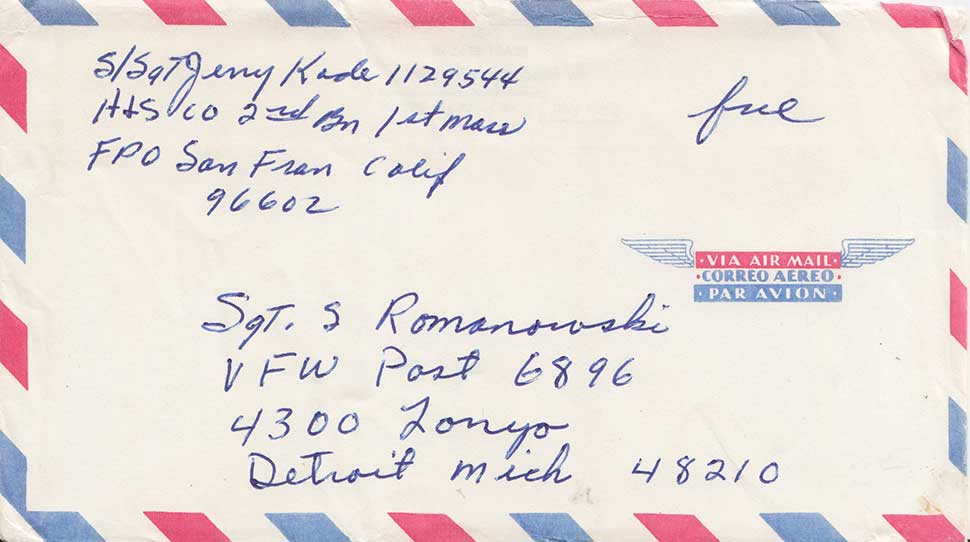 S/Sgt Jerry Kade 1129544
H&S Co 2nd Bn 1st Mar
FPO San Fran Calif
96602
free
· VIA AIR MAIL ·
· CORREO AEREO ·
· PAR AVION ·
Sgt. S Romanowski
VFW Post 6896
4300 Lonyo
Detroit Mich 48210